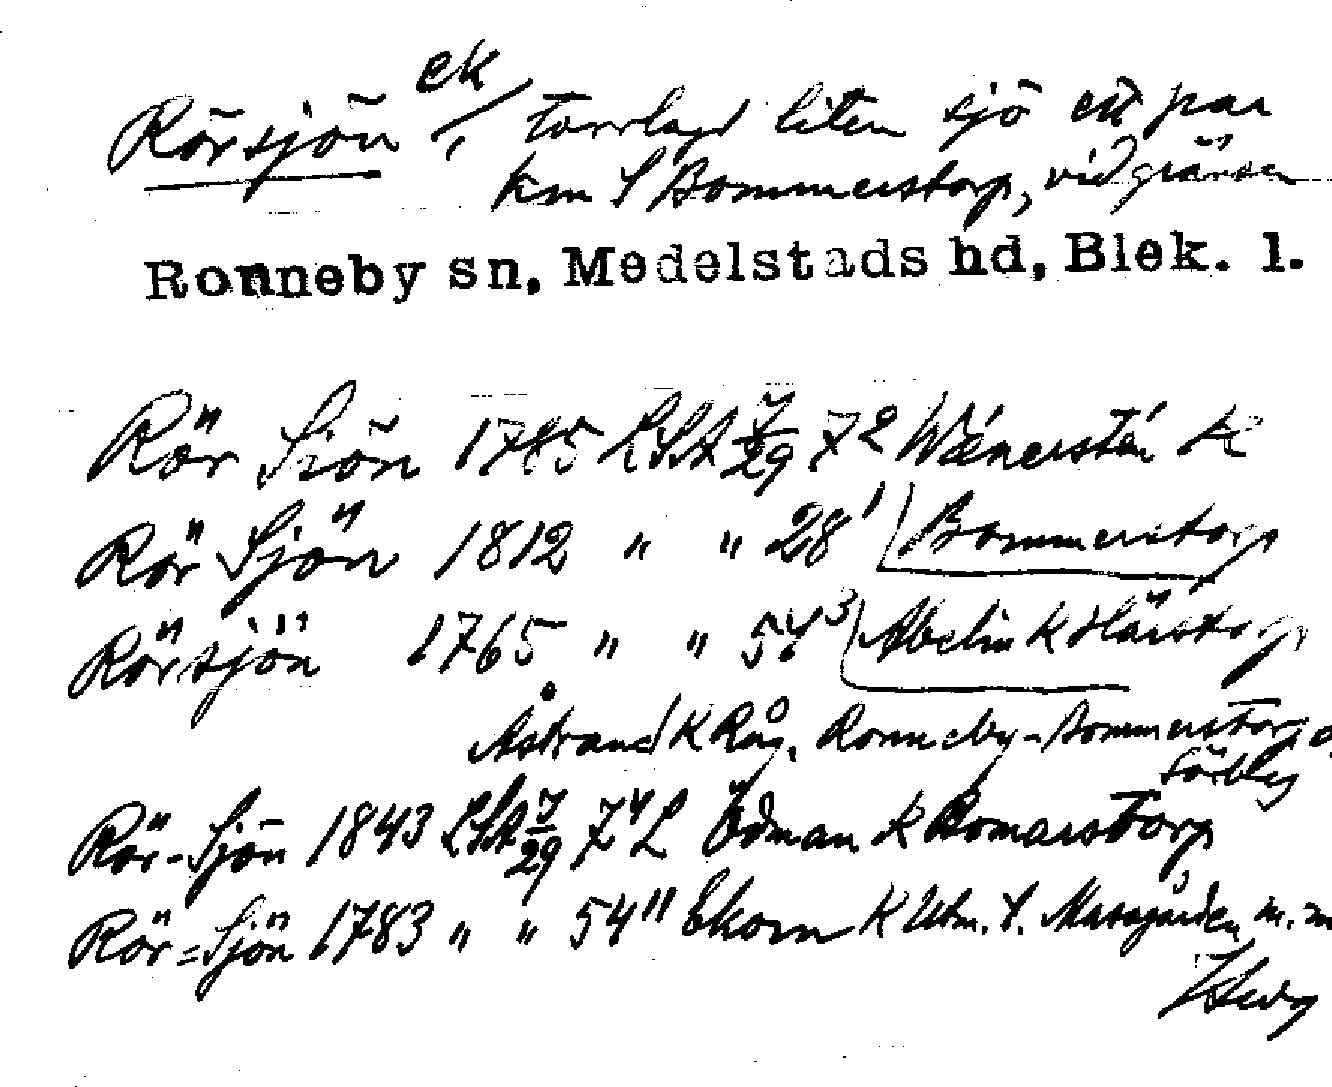 Rörsjön ek, torrlagd liten sjö ett par
km S Bommerstorp, vid gränsen
Ronneby sn, Medelstads hd, Blek. l.
Rör Siön 1785 LSA 7/29 7² Wénerstén K
Rör Sjön 1812 " " 28¹ Bommerstorp
Rörsjön 1765 " " 54³ Abelin K Härstorp
Åstrand K Råg. Ronneby-Bommerstorp o.
Förtley
Rör-Sjön 1843 LSA 7/29 7⁴ L Ödman K Bomarstorp
Rör=Sjön 1783 " " 54¹¹ Ekorn K Utm. t. Massgården m.m